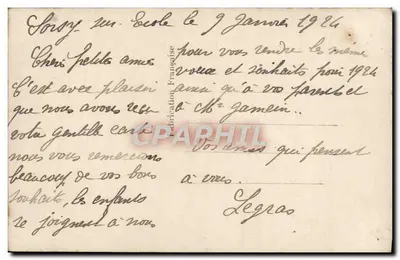 Soisy sur École le 9 Janvier 1924
Chers petits amis
C'est avec plaisir
que nous avons reçu
votre gentille carte
nous vous remercions
beaucoup de vos bons
souhaits, les enfants
se joignent à nous
Fabrication Française
pour vous rendre les même
voeux et souhaits pour 1924
ainsi qu'à vos parents et
à Mr Gamein..
Vos amis qui pensent
à vous.
Legras
CPARAMA